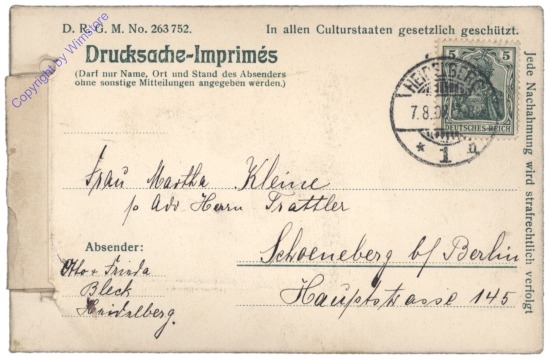 D. R. G. M. No. 263752.
In allen Culturstaaten gesetzlich geschützt.
Drucksache-Imprimés
(Darf nur Name, Ort und Stand des Absenders
ohne sonstige Mitteilungen angegeben werden.)
Jede Nachahmung wird strafrechtlich verfolgt
Copyright by Winstore
5 5
DEUTSCHES REICH
HEIDELBERG
7.8.0
* 1 n
Frau Martha Kleine
p Adr Herrn Trattler
Schoeneberg b/ Berlin
Hauptstrasse 145
Absender:
Otto + Frieda
Bleck
Heidelberg.